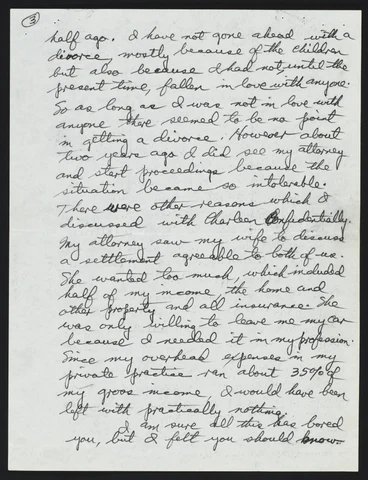 3
half ago. I have not gone ahead with a
divorce, mostly because of the children
but also because I had not, until the
present time, fallen in love with anyone.
So as long as I was not in love with
anyone there seemed to be no point
in getting a divorce. However about
two years ago I did see my attorney
and start proceedings because the
situation became so intolerable.
There were other reasons which I
discussed with Charleen Confedentially.
My attorney saw my wife to discuss
a settlement agreeable to both of us.
She wanted too much, which included
half of my income the home and
other property and all insurance. She
was only willing to leave me my car
because I needed it in my profession.
Since my overhead expenses in my
private practice ran about 35% of
my gross income, I would have been
left with practically nothing.
I am sure all this has bored
you, but I felt you should know.